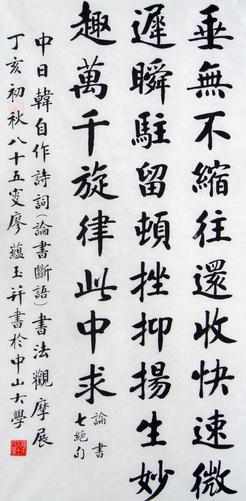 垂無不縮往還收快速微
遲瞬駐留頓挫抑揚生妙
趣萬千旋律此中求
論書
七絕句
中日韓自作詩詞(論書斷語)書法觀摩展
丁亥初秋八十五叟廖蘊玉并書於中山大學